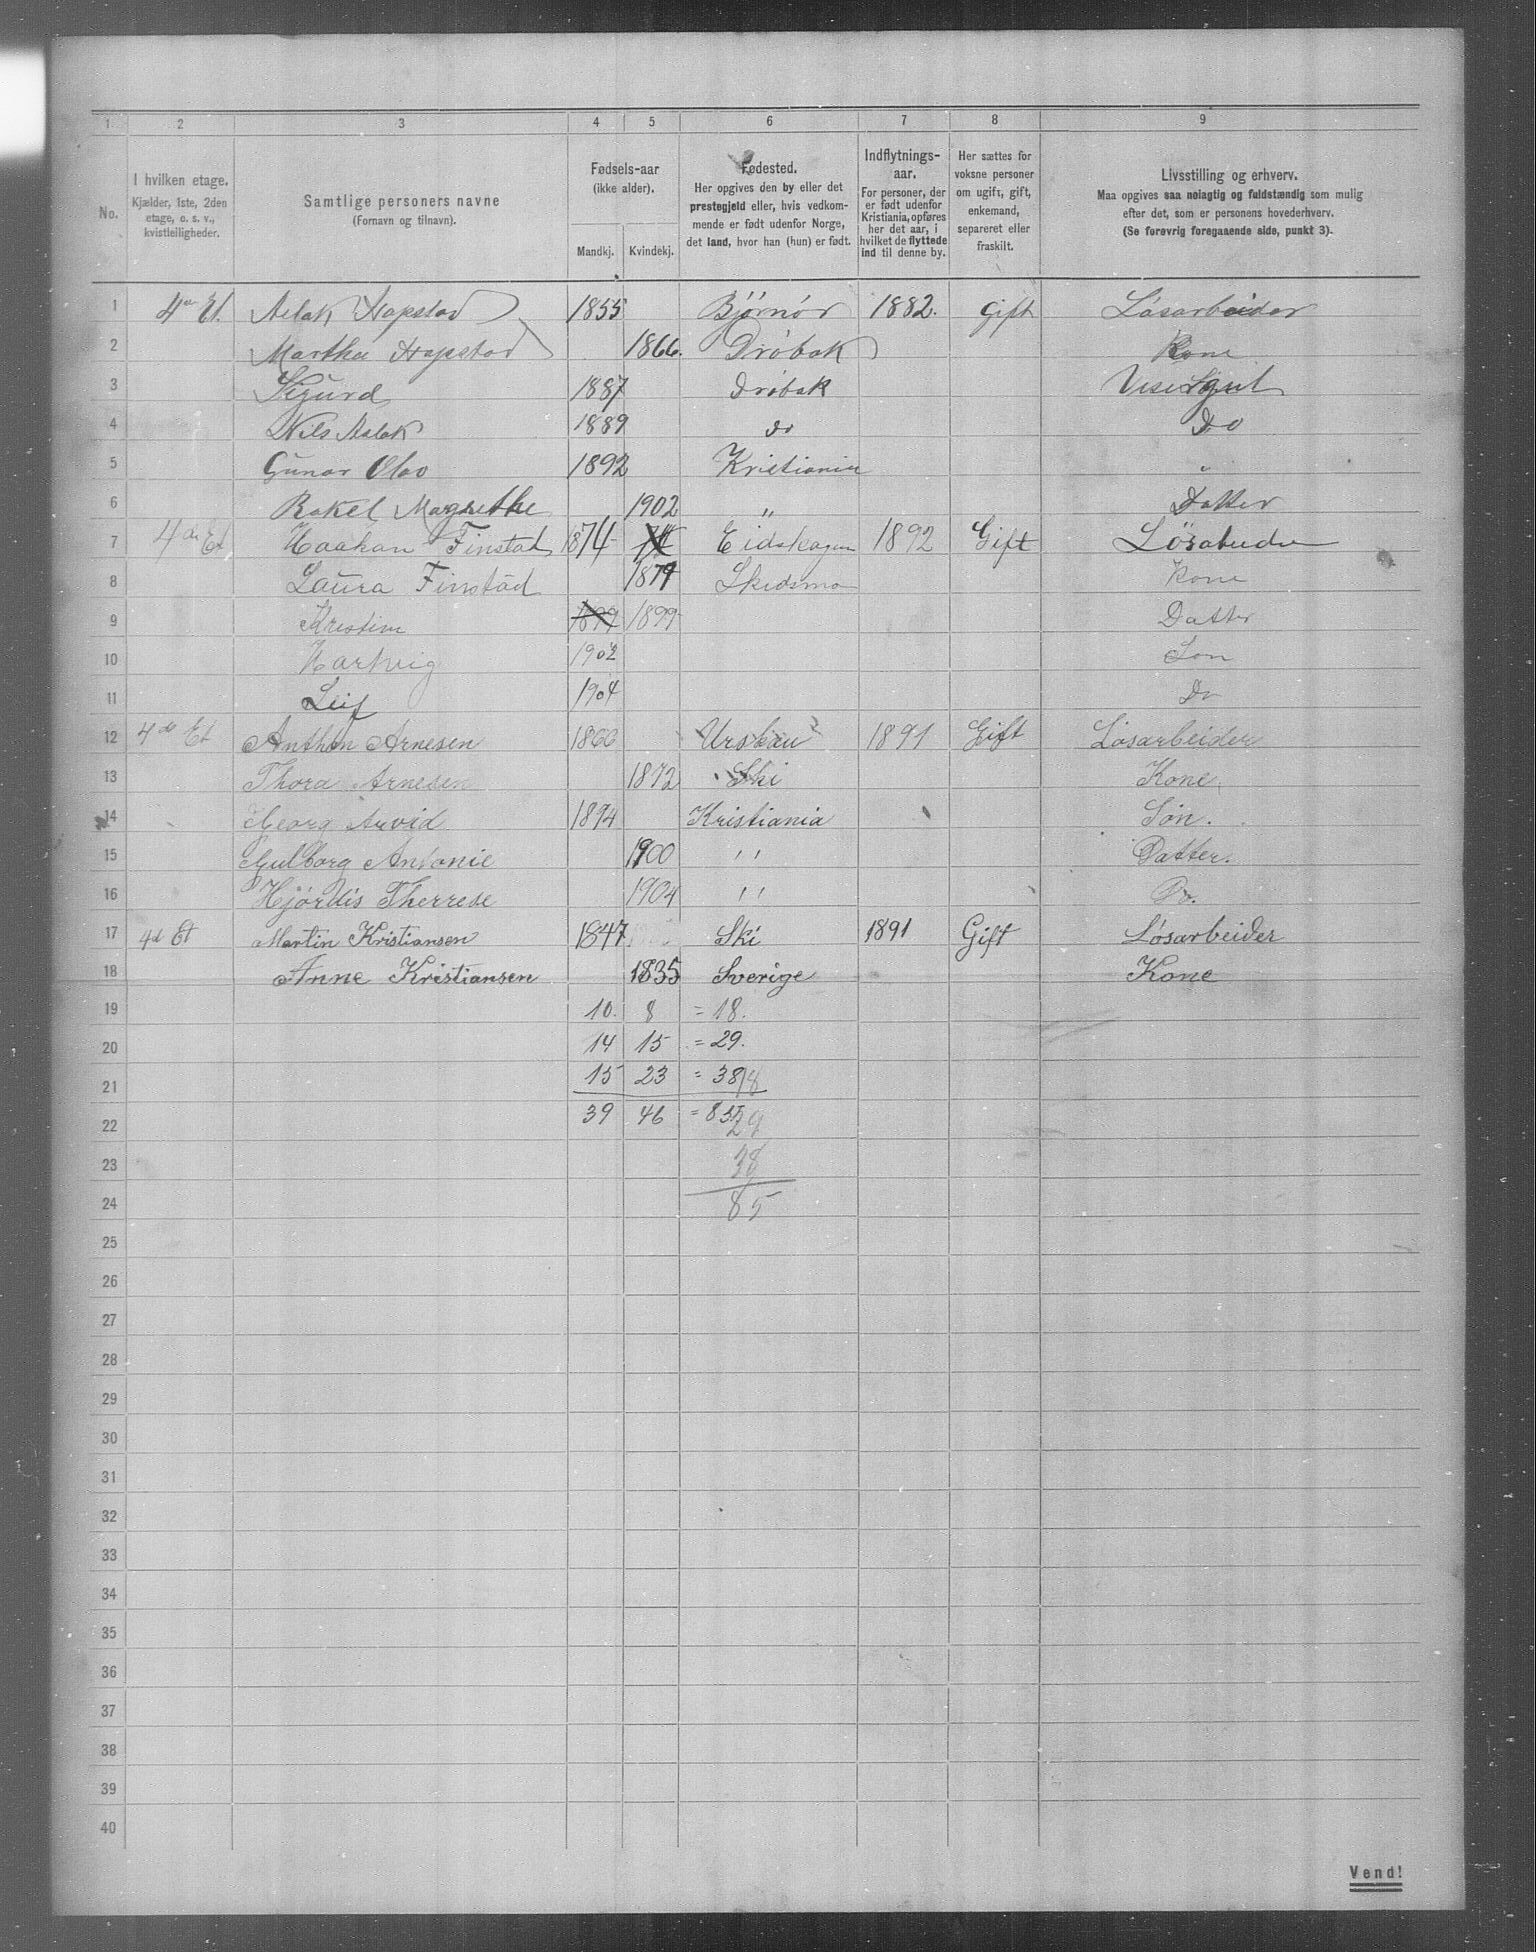 1 2 3 4 5 6 7 8 9
No.
I hvilken etage.
Kjælder, 1ste, 2den
etage, o. s. v.,
kvistleiligheder.
Samtlige personers navne
(Fornavn og tilnavn).
Fødsels-aar
(ikke alder).
Mandkj. Kvindekj.
Fødested.
Her opgives den by eller det
prestegjeld eller, hvis vedkom-
mende er født udenfor Norge,
det land, hvor han (hun) er født.
Indflytnings-
aar.
For personer, der
er født udenfor
Kristiania, opføres
her det aar, i
hvilket de flyttede
ind til denne by.
Her sættes for
voksne personer
om ugift, gift,
enkemand,
separeret eller
fraskilt.
Livsstilling og erhverv.
Maa opgives saa nøiagtig og fuldstændig som mulig
efter det, som er personens hovederhverv.
(Se forøvrig foregaaende side, punkt 3).
1 4de Et. Aslak Hopstad 1855 Bjørnør 1882. Gift Løsarbeider
2 Martha Hopstad 1866. Drøbak Kone
3 Sigurd 1887 Drøbak Visergut
4 Nils Aslak 1889 do Do
5 Gunar Olav 1892 Kristiania "
6 Rakel Magrethe 1902 " Datter
7 4de Et Haakan Finstad 1874 74 Eidskogen 1892 Gift
8 Laura Finstad 1874 Skedsmo Kone
9 Kristine 1899 1899 Datter
10 Hartvig 1902 Søn
11 Leif 1904 Do
12 4de Et Anthon Arnesen 1866 Urskau 1891 Gift Løsarbeider
13 Thora Arnesen 1872 Ski Kone
14 Georg Arvid 1894 Kristiania Søn.
15 Gulborg Antonie 1900 " Datter.
16 Hjørdis Therrese 1904 " Do.
17 4d Et Martin Kristiansen 1847 Ski 1891 Gift Løsarbeider
18 Anne Kristiansen 1835 Sverige Kone
19 10. 8 = 18.
20 14 15 = 29.
21 15 23 = 38 18
22 39 46 = 85 29
23 38
24 85
25
26
27
28
29
30
31
32
33
34
35
36
37
38
39
40
Vend!